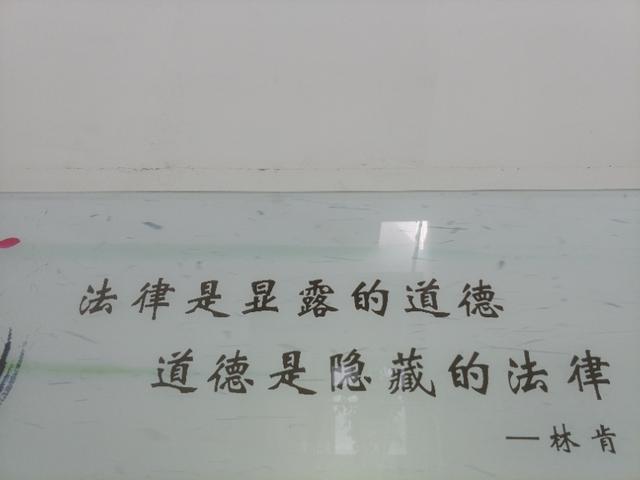 法律是显露的道德
道德是隐藏的法律
—林肯